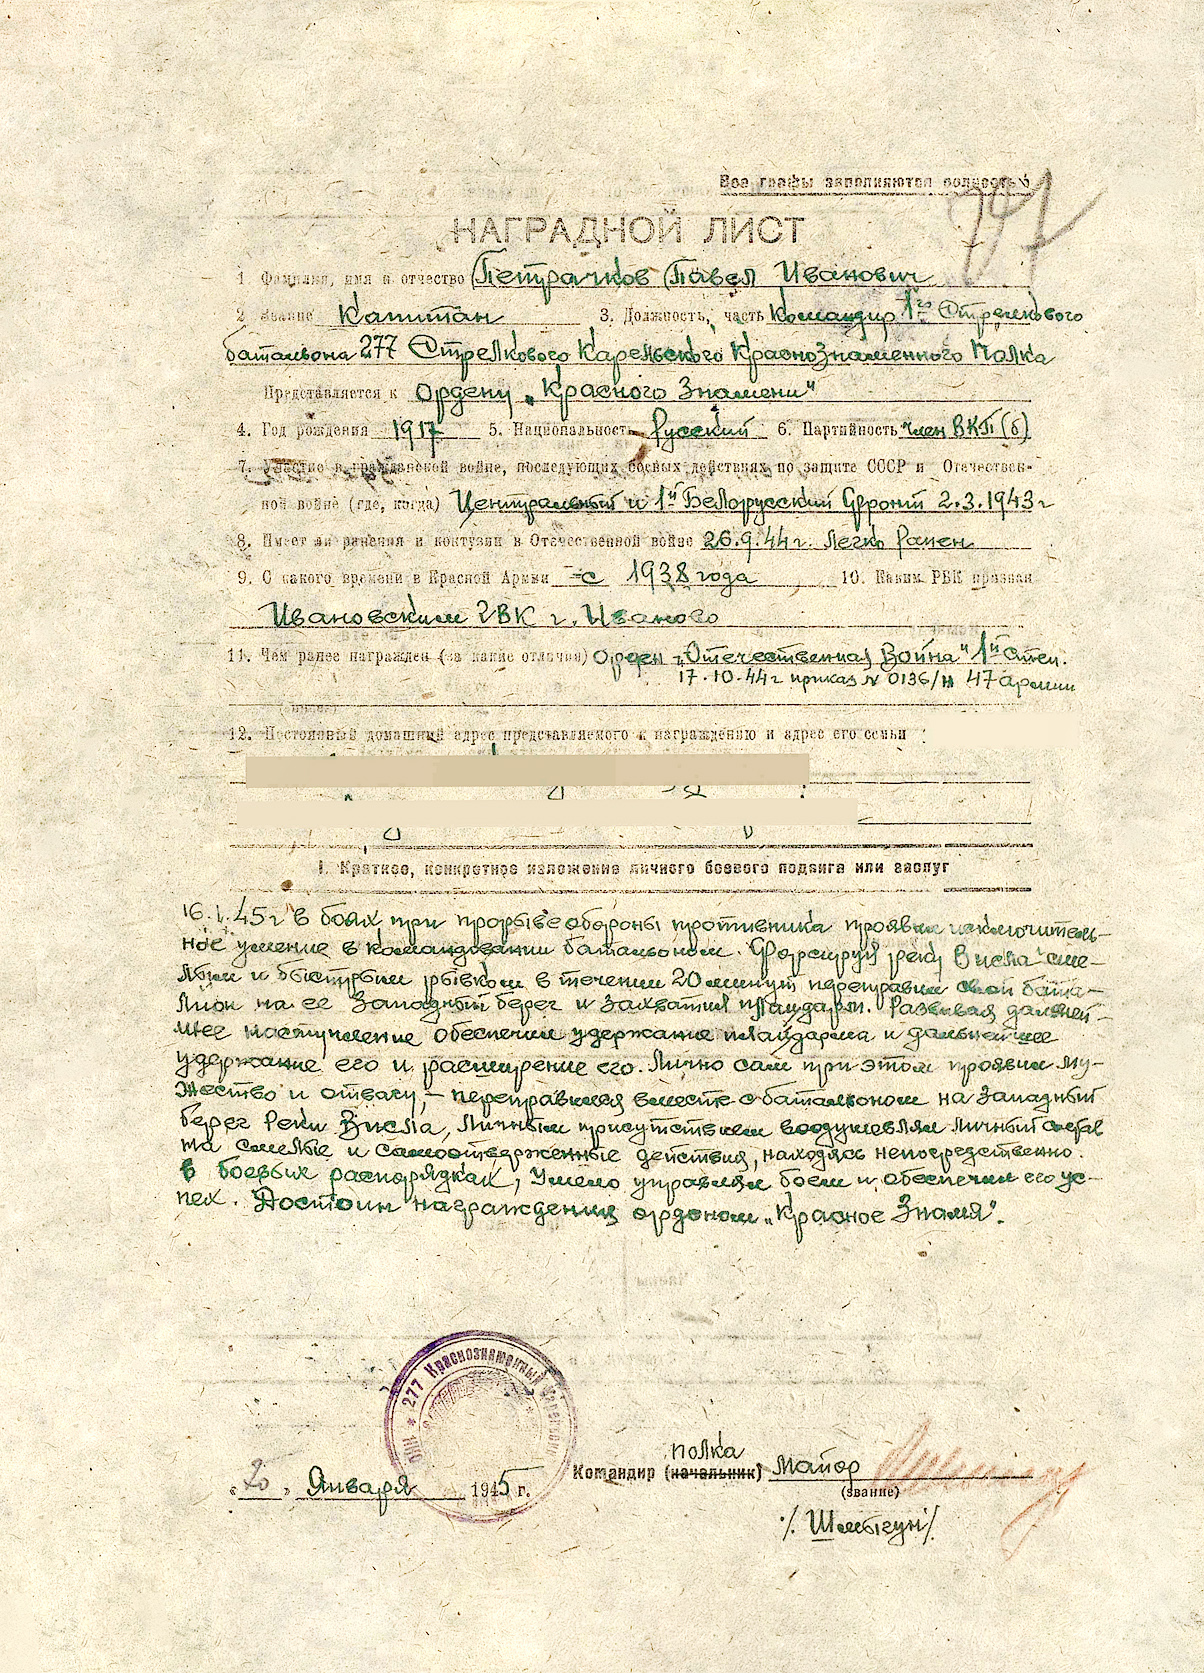 Все графы заполняются полностью
НАГРАДНОЙ ЛИСТ
1. Фамилия, имя и отчество Петрачков Павел Иванович
2. Звание Капитан 3. Должность, часть Командир 1го Стрелкового
батальона 277 Стрелкового Карельского Краснознаменного Полка
Представляется к ордену „Красного Знамени"
4. Год рождения 1917 5. Национальность Русский 6. Партийность Член ВКП(б)
7. Участие в гражданской войне, последующих боевых действиях по защите СССР и Отечествен-
ной войне (где, когда) Центральный и 1й Белорусский Фронт 2.3.1943г
8. Имеет ли ранения и контузии в Отечественной войне 26.9.44г. Легко Ранен
9. С какого времени в Красной Армии с 1938 года 10. Каким РВК призван
Ивановским ГВК г. Иваново
11. Чем ранее награжден (за какие отличия) Орден „Отечественная Война" 1й степ.
17.10.44г приказ № 0136/н 47 армии
12. Постоянный домашний адрес представляемого к награждению и адрес его семьи
I. Краткое, конкретное изложение личного боевого подвига или заслуг
16.1.45г в боях при прорыве обороны противника проявил исключитель-
ное умение в командовании батальоном. Форсируя реку Висла сме-
лым и быстрым рывком в течении 20 минут переправил свой бата-
лион на ее Западный берег и захватил плацдарм. Развивая дальней-
шее наступление обеспечил удержание плацдарма и дальнейшее
удержание его и расширение его. Лично сам при этом проявил му-
жество и отвагу, – переправился вместе с батальоном на Западный
берег Реки Висла, личным присутствием воодушевлял личный состав
на смелые и самоотверженные действия, находясь непосредственно.
в боевых распорядках, Умело управлял боем и обеспечил его ус-
пех. Достоин награждения орденом „Красное Знамя".
277 Краснознаменный Карельский
„20" Января 1945 г.
полка
Командир (начальник) майор
(звание)
/Шлыгин/